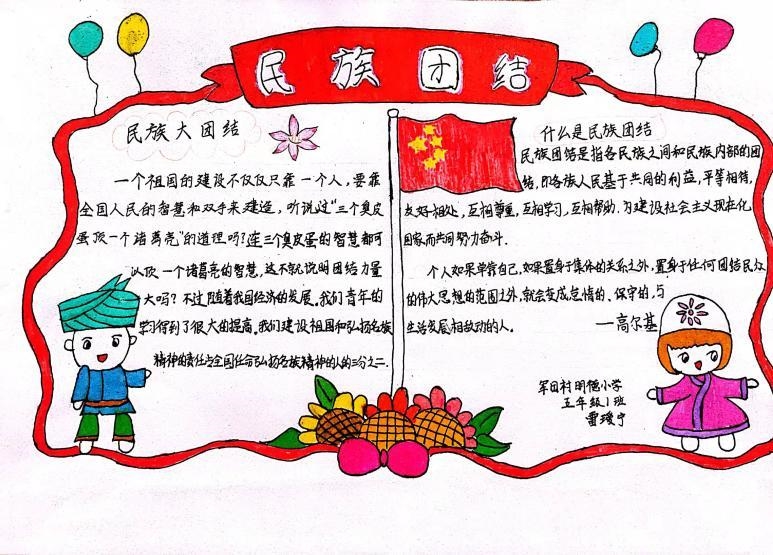 民族团结
民族大团结
一个祖国的建设不仅仅只靠一个人，要靠
全国人民的智慧和双手来建造，听说过“三个臭皮
蛋顶一个诸葛亮”的道理吗？连三个臭皮蛋的智慧都可
以顶一个诸葛亮的智慧，这不就说明团结力量
大吗？不过随着我国经济的发展，我们青年的
学习得到了很大的提高。我们建设祖国和弘扬名族
精神的责任与全国任命弘扬名族精神的人的三分之二.
什么是民族团结
民族团结是指各民族之间和民族内部的团
结，即各族人民基于共同的利益，平等相待，
友好相处，互相尊重，互相学习，互相帮助.为建设社会主义现在化
国家而共同努力奋斗.
个人如果单靠自己，如果置身于集体的关系之外，置身于任何团结民众
的伟大思想的范围之外，就会变成怠惰的、保守的，与
生活发展相敌动的人。
—高尔基
军田村明德小学
五年级1班